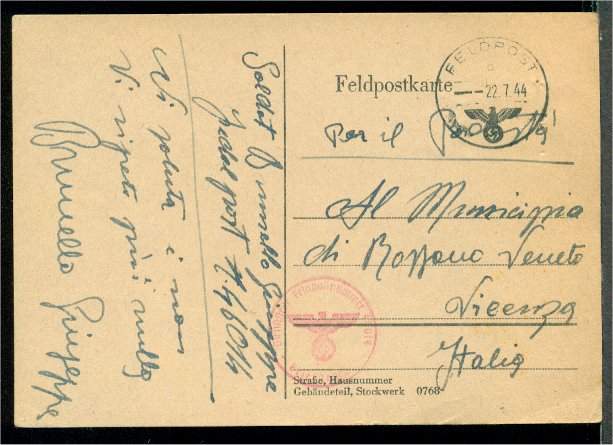 Feldpostkarte
FELDPOST
22.7.44
Per il
Al Municipio
di Rossano Veneto
Vicenza
Italia
Straße, Hausnummer
Gebäudeteil, Stockwerk 0768
Soldat Brunello Giuseppe
Feldpost N. 46014
Vi saluta e non
Vi ripeto più nulla
Brunello Giuseppe